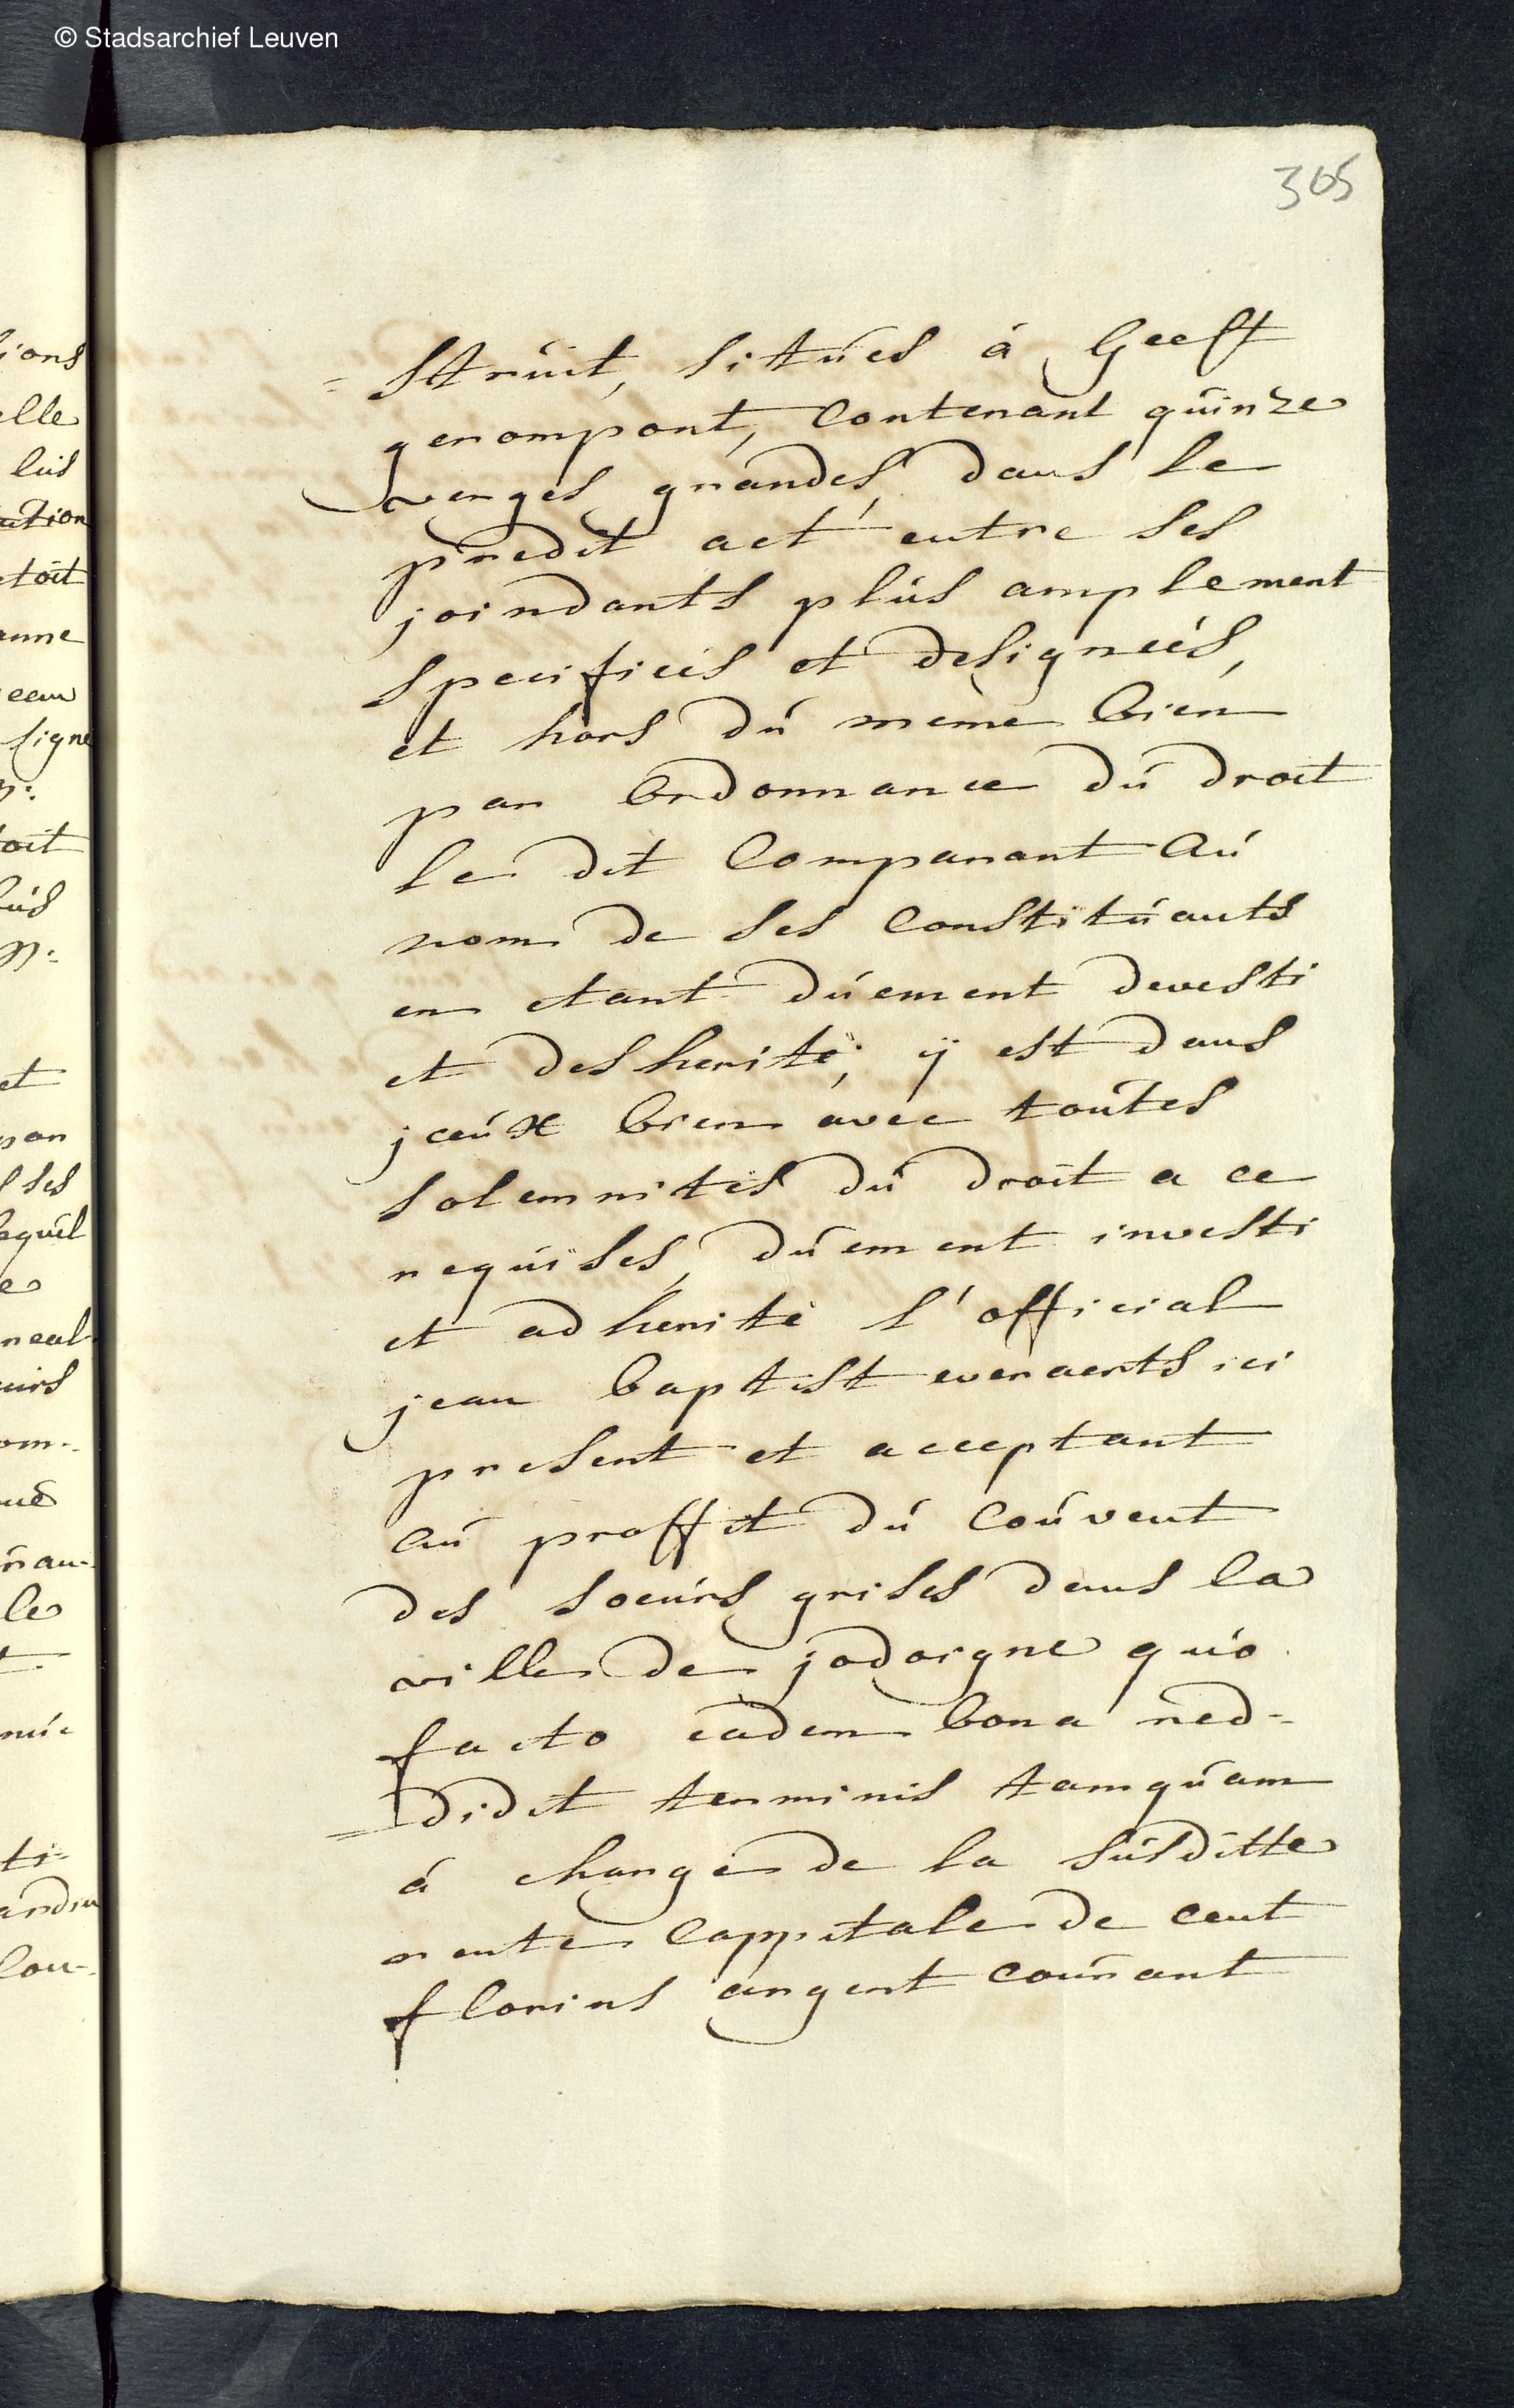 © Stadsarchief Leuven
305
= struit, situes á Geest
gerompont, Contenant quinze
verges grandes, dans le
predit act entre ses
joindants plus amplement
specifiés et designeés,
et hors du même bien
par Ordonnance du droit
le dit Comparant Au
nom de ses Constituants
en etant duement devesti
et desherité; ÿ est dans
jceux bien avec toutes
solemnités du droit a ce
requises, duement investi
et adherité l'official
jean baptist everaerts ici
present et acceptant
au proffit du Couvent
des soeurs grises dans la
ville de jodoigne quo
facto eadem bona red=
=didit terminis tamquam
á charge de la susditte
rente Cappitale de cent
florins argent courant
ions
elle
lus
ution
toit
anne
ceau
signe
oit
lus
et
par
ses
lequel
real
eurs
om.
le
ti=
Cou-